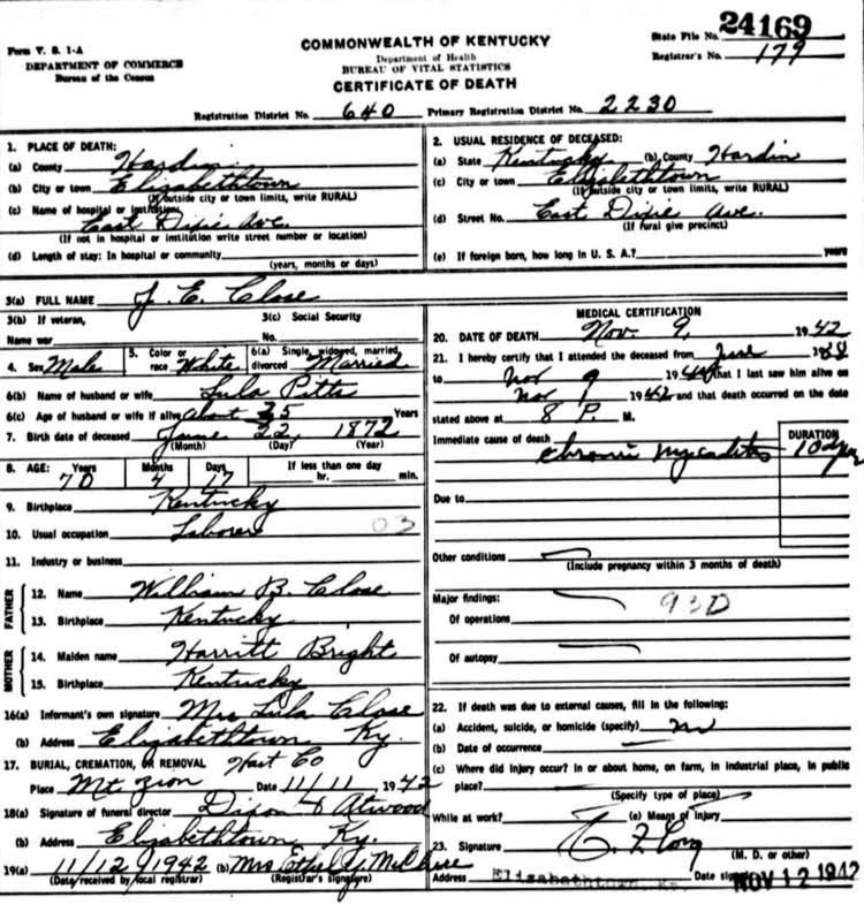 Form V. S. 1-A
DEPARTMENT OF COMMERCE
Bureau of the Census
COMMONWEALTH OF KENTUCKY
Department of Health
BUREAU OF VITAL STATISTICS
CERTIFICATE OF DEATH
State File No. 24169
Registrar's No. 179
Registration District No. 640 Primary Registration District No. 2230
1. PLACE OF DEATH:
(a) County Hardin
(b) City or town Elizabethtown
(If outside city or town limits, write RURAL)
(c) Name of hospital or institution:
East Dixie Ave.
(If not in hospital or institution write street number or location)
(d) Length of stay: In hospital or community
(years, months or days)
2. USUAL RESIDENCE OF DECEASED:
(a) State Kentucky (b) County Hardin
(c) City or town Elizabethtown
(If outside city or town limits, write RURAL)
(d) Street No. East Dixie Ave.
(If rural give precinct)
(e) If foreign born, how long in U. S. A.? years
3(a) FULL NAME J. E. Close
3(b) If veteran,
Name war
3(c) Social Security
No.
4. Sex Male
5. Color or race White
6(a) Single, widowed, married, divorced Married
6(b) Name of husband or wife Lula Pitts
6(c) Age of husband or wife if alive about Years
7. Birth date of deceased June 22, 1872
(Month) (Day) (Year)
8. AGE: Years 70 Months 4 Days 17 If less than one day hr. min.
9. Birthplace Kentucky
10. Usual occupation Laborer 03
11. Industry or business
FATHER
12. Name William B. Close
13. Birthplace Kentucky
MOTHER
14. Maiden name Harritt Bright
15. Birthplace Kentucky
16(a) Informant's own signature Mrs Lula Close
(b) Address Elizabethtown Ky.
17. BURIAL, CREMATION, OR REMOVAL Hart Co
Place Mt Zion Date 11/11 1942
18(a) Signature of funeral director Dixon & Atwood
(b) Address Elizabethtown, Ky.
19(a) 11/12/1942 (b) Mrs Ethel Y.
(Date received by local registrar) (Registrar's signature)
MEDICAL CERTIFICATION
20. DATE OF DEATH Nov. 9, 1942
21. I hereby certify that I attended the deceased from June 19
to Nov 9 19 that I last saw him alive on
Nov 1942 and that death occurred on the date
stated above at 8 P. M.
Immediate cause of death
chronic
DURATION
Due to
Other conditions
(Include pregnancy within 3 months of death)
Major findings: 93D
Of operations
Of autopsy
22. If death was due to external causes, fill in the following:
(a) Accident, suicide, or homicide (specify)
(b) Date of occurrence
(c) Where did injury occur? In or about home, on farm, in industrial place, in public
place?
(Specify type of place)
While at work? (e) Means of injury
23. Signature
(M. D. or other)
Address Elizabethtown, Ky. Date signed NOV 12 1942